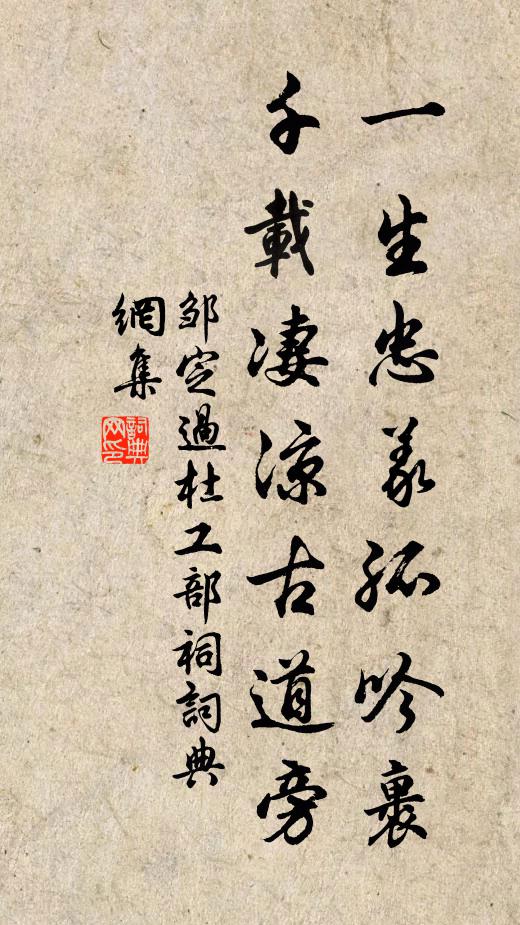 一生忠義孤吟裏
千載凄涼古道旁
邹定過杜工部祠詞典
網集
詞典
网印